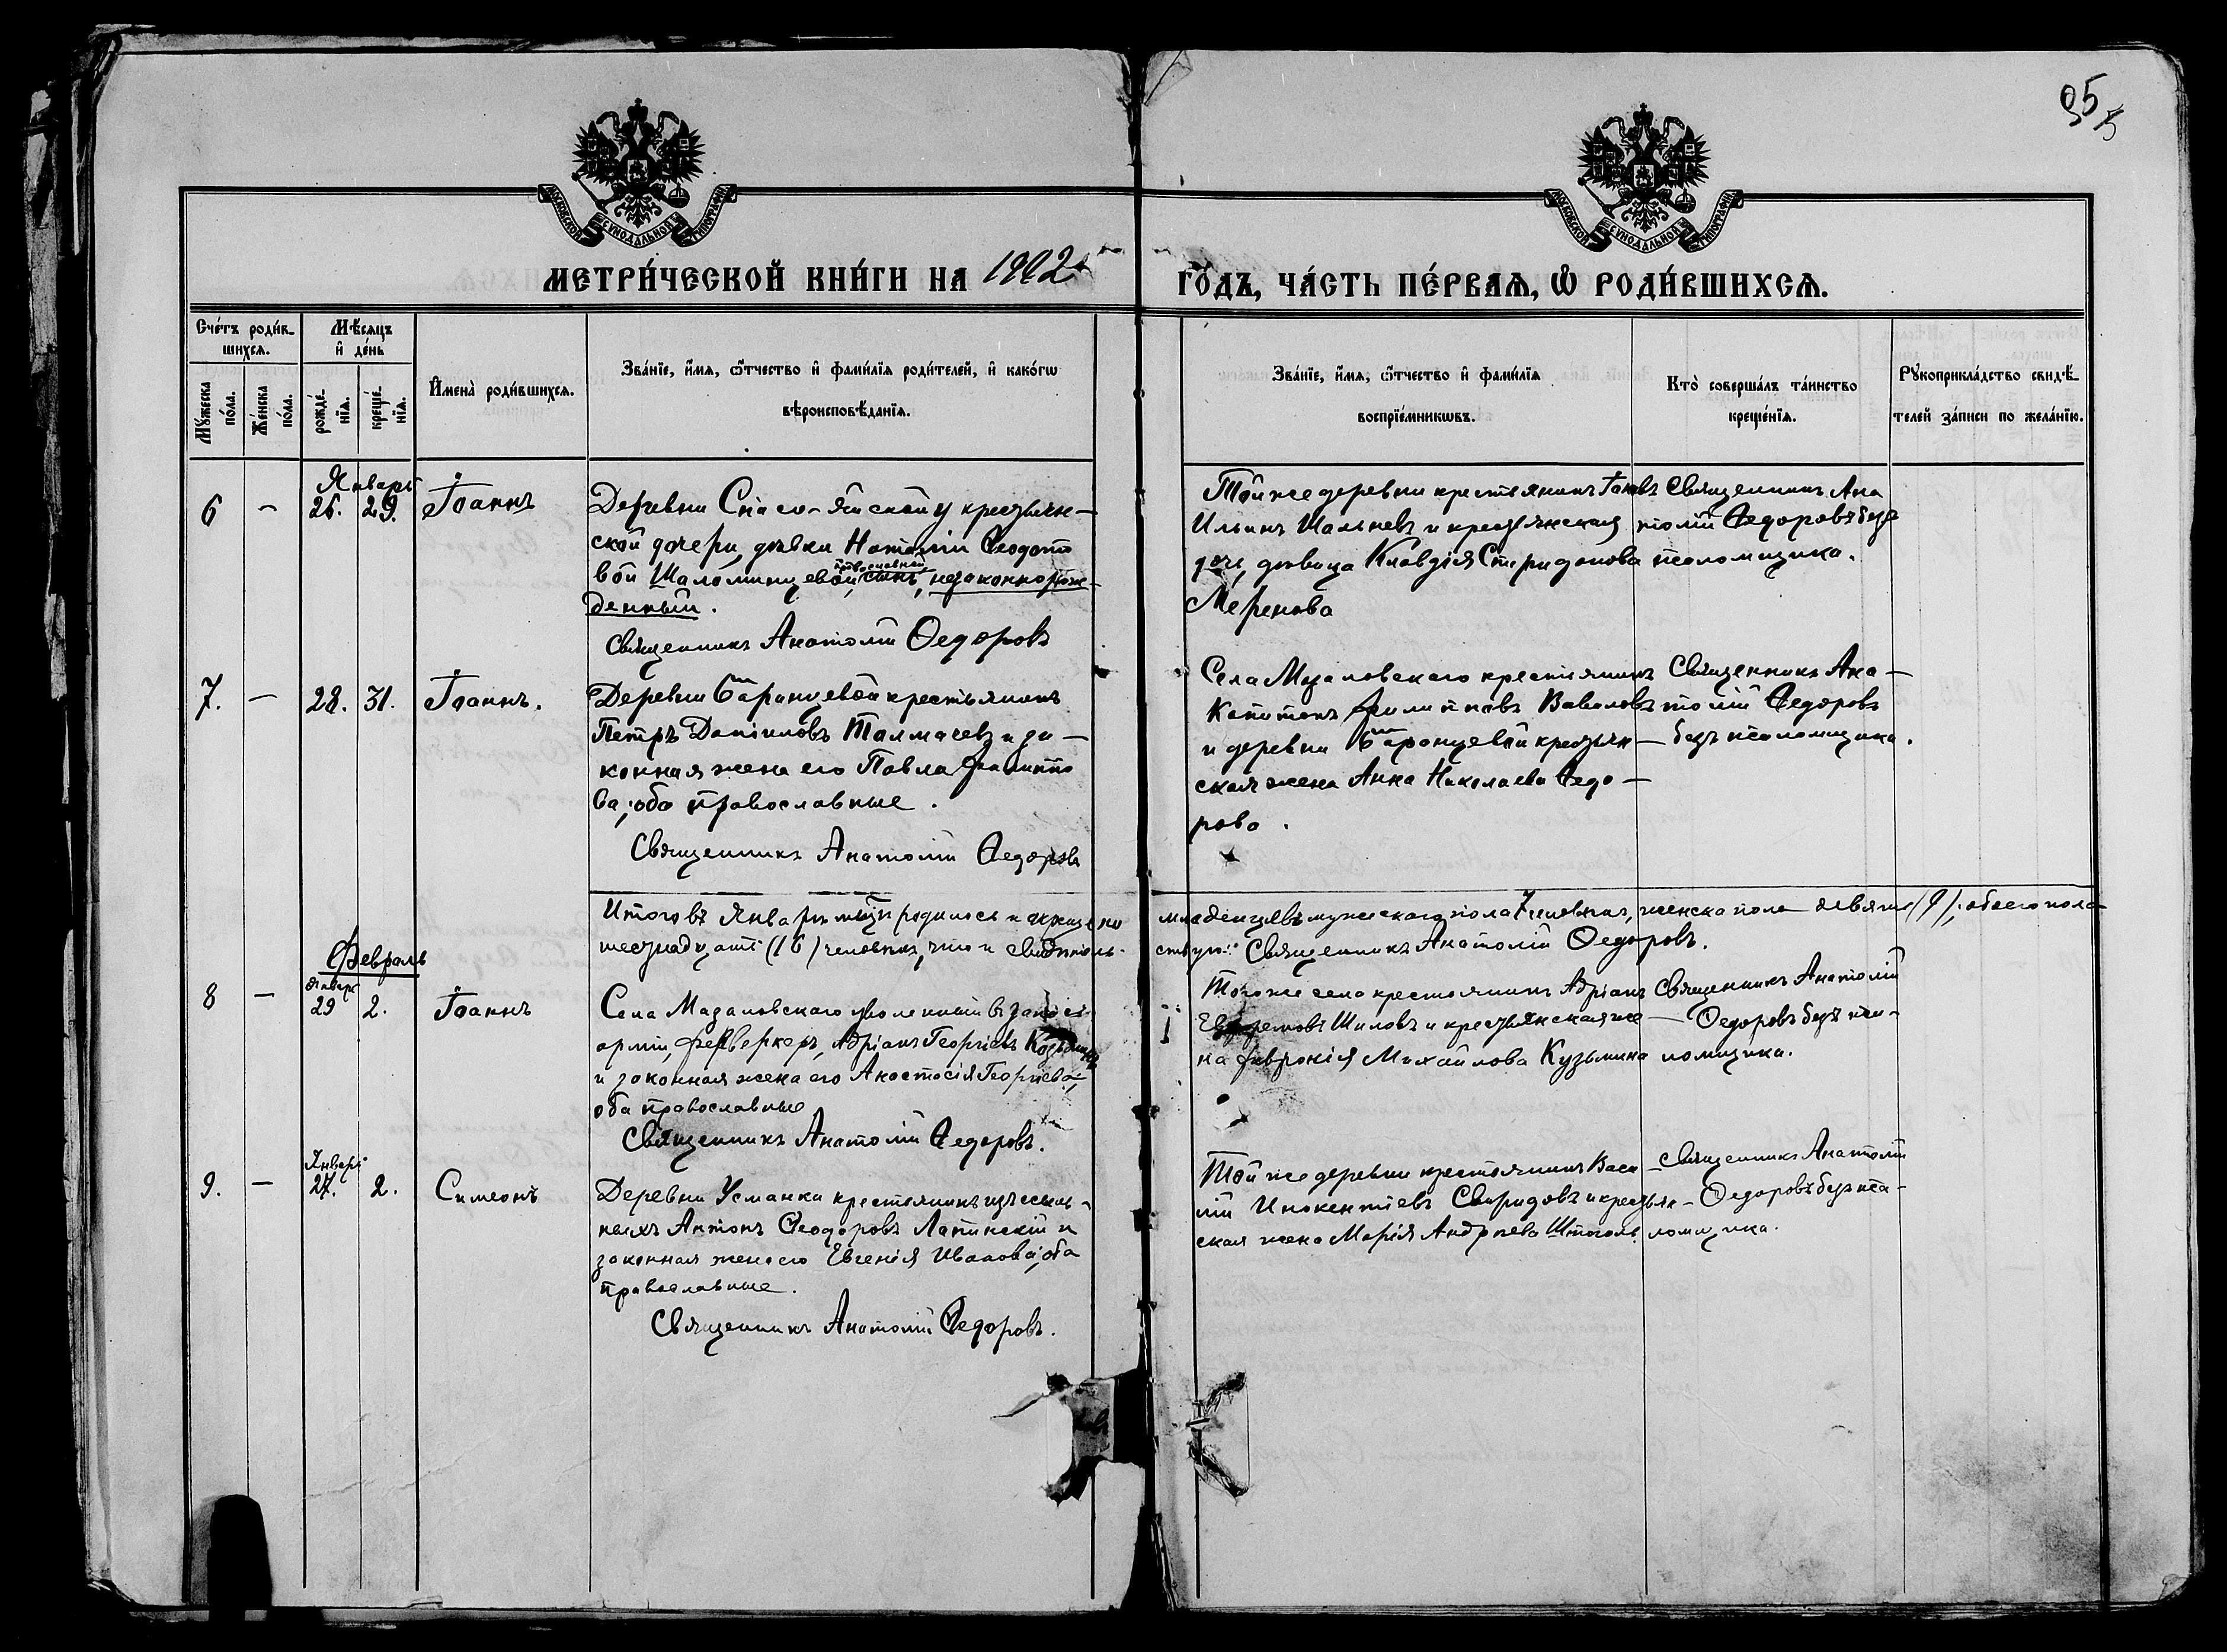 95
МОСКОВСКОЙ СУНОДАЛЬНОЙ ТИПОГРАФІИ
МОСКОВСКОЙ СУНОДАЛЬНОЙ ТИПОГРАФІИ
МЕТРИ́ЧЕСКОЙ КНИ́ГИ НА 1902 ГО́ДЪ, ЧА́СТЬ ПЕ́РВАѦ, Ѽ РОДИ́ВШИХСѦ.
Сче́тъ роди́в-
шихсѧ.
Му́жеска по́ла.
Же́нска по́ла.
Мѣ́сѧцъ
и҆ де́нь
рожде́-нїѧ.
креще́-нїѧ.
И҆мена̀ роди́вшихсѧ.
Зва́нїе, и҆́мѧ, ѻ҆́тчество и҆ фами́лїѧ роди́телей, и҆ како́гѡ
вѣроисповѣ́данїѧ.
Зва́нїе, и҆́мѧ, ѻ҆́тчество и҆ фами́лїѧ
воспрїе́мникѡвъ.
Кто̀ соверша́лъ та́инство
креще́нїѧ.
Рꙋкоприкла́дство свидѣ́-
телей за́писи по жела́нїю.
Январь
6 – 26. 29. Іоаннъ
Деревни Спасо-Яйской у крестьян-
ской дочери, дѣвки Наталіи Ѳеодото
вой Шаломинцевой, православной, сынъ, незаконнорож-
денный.
Священникъ Анатолій Ѳедоровъ
Той же деревни крестьянинъ Іаковъ
Ильинъ Шальневъ и крестьянская
дочь, дѣвица Клавдія Спиридонова
Меренова
Священникъ Ана
толій Ѳедоровъ безъ
псаломщика.
7. – 28. 31. Іоаннъ.
Деревни Баранцевой крестьянинъ
Петръ Даніиловъ Толмачевъ и за-
конная жена его Павла Филиппо
ва, оба православные.
Священникъ Анатолій Ѳедоровъ
Села Мазаловскаго крестьянинъ
Капитонъ Филипповъ Вавиловъ
и деревни Баранцевой крестьян-
ская жена Анна Николаева Ѳедо-
рова.
Священникъ Ана-
толій Ѳедоровъ
безъ псаломщика.
Итого въ Январѣ мцѣ родилось и крещено младенцевъ мужескаго пола 7 человѣкъ, женска пола девять (9), обоего пола
шестнадцать (16) человѣкъ, что и свидѣтель-ствую: Священникъ Анатолій Ѳедоровъ.
Февраль
Январь
8 – 29 2. Іоаннъ
Села Мазаловскаго уволенный въ запасъ
арміи, фейерверкеръ, Адріанъ Георгіевъ
и законная жена его Анастасія Георгіева,
оба православные
Священникъ Анатолій Ѳедоровъ.
Того же села крестьянинъ Адріанъ
Ефремовъ Шиловъ и крестьянская же-
на Февронія Михайлова Кузьмина
Священникъ Анатолій
Ѳедоровъ безъ пса-
ломщика.
Январь
9. – 27. 2. Симеонъ
Деревни Усманки крестьянинъ изъ ссыль-
ныхъ Антонъ Ѳеодоровъ Латинскій и
законная жена его Евгенія Иванова, оба
православные.
Священникъ Анатолій Ѳедоровъ.
Той же деревни крестьянинъ Васи-
лій Инокентіевъ Свиридовъ и крестьян-
ская жена Марія Андреева
Священникъ Анатолій
Ѳедоровъ безъ пса-
ломщика.